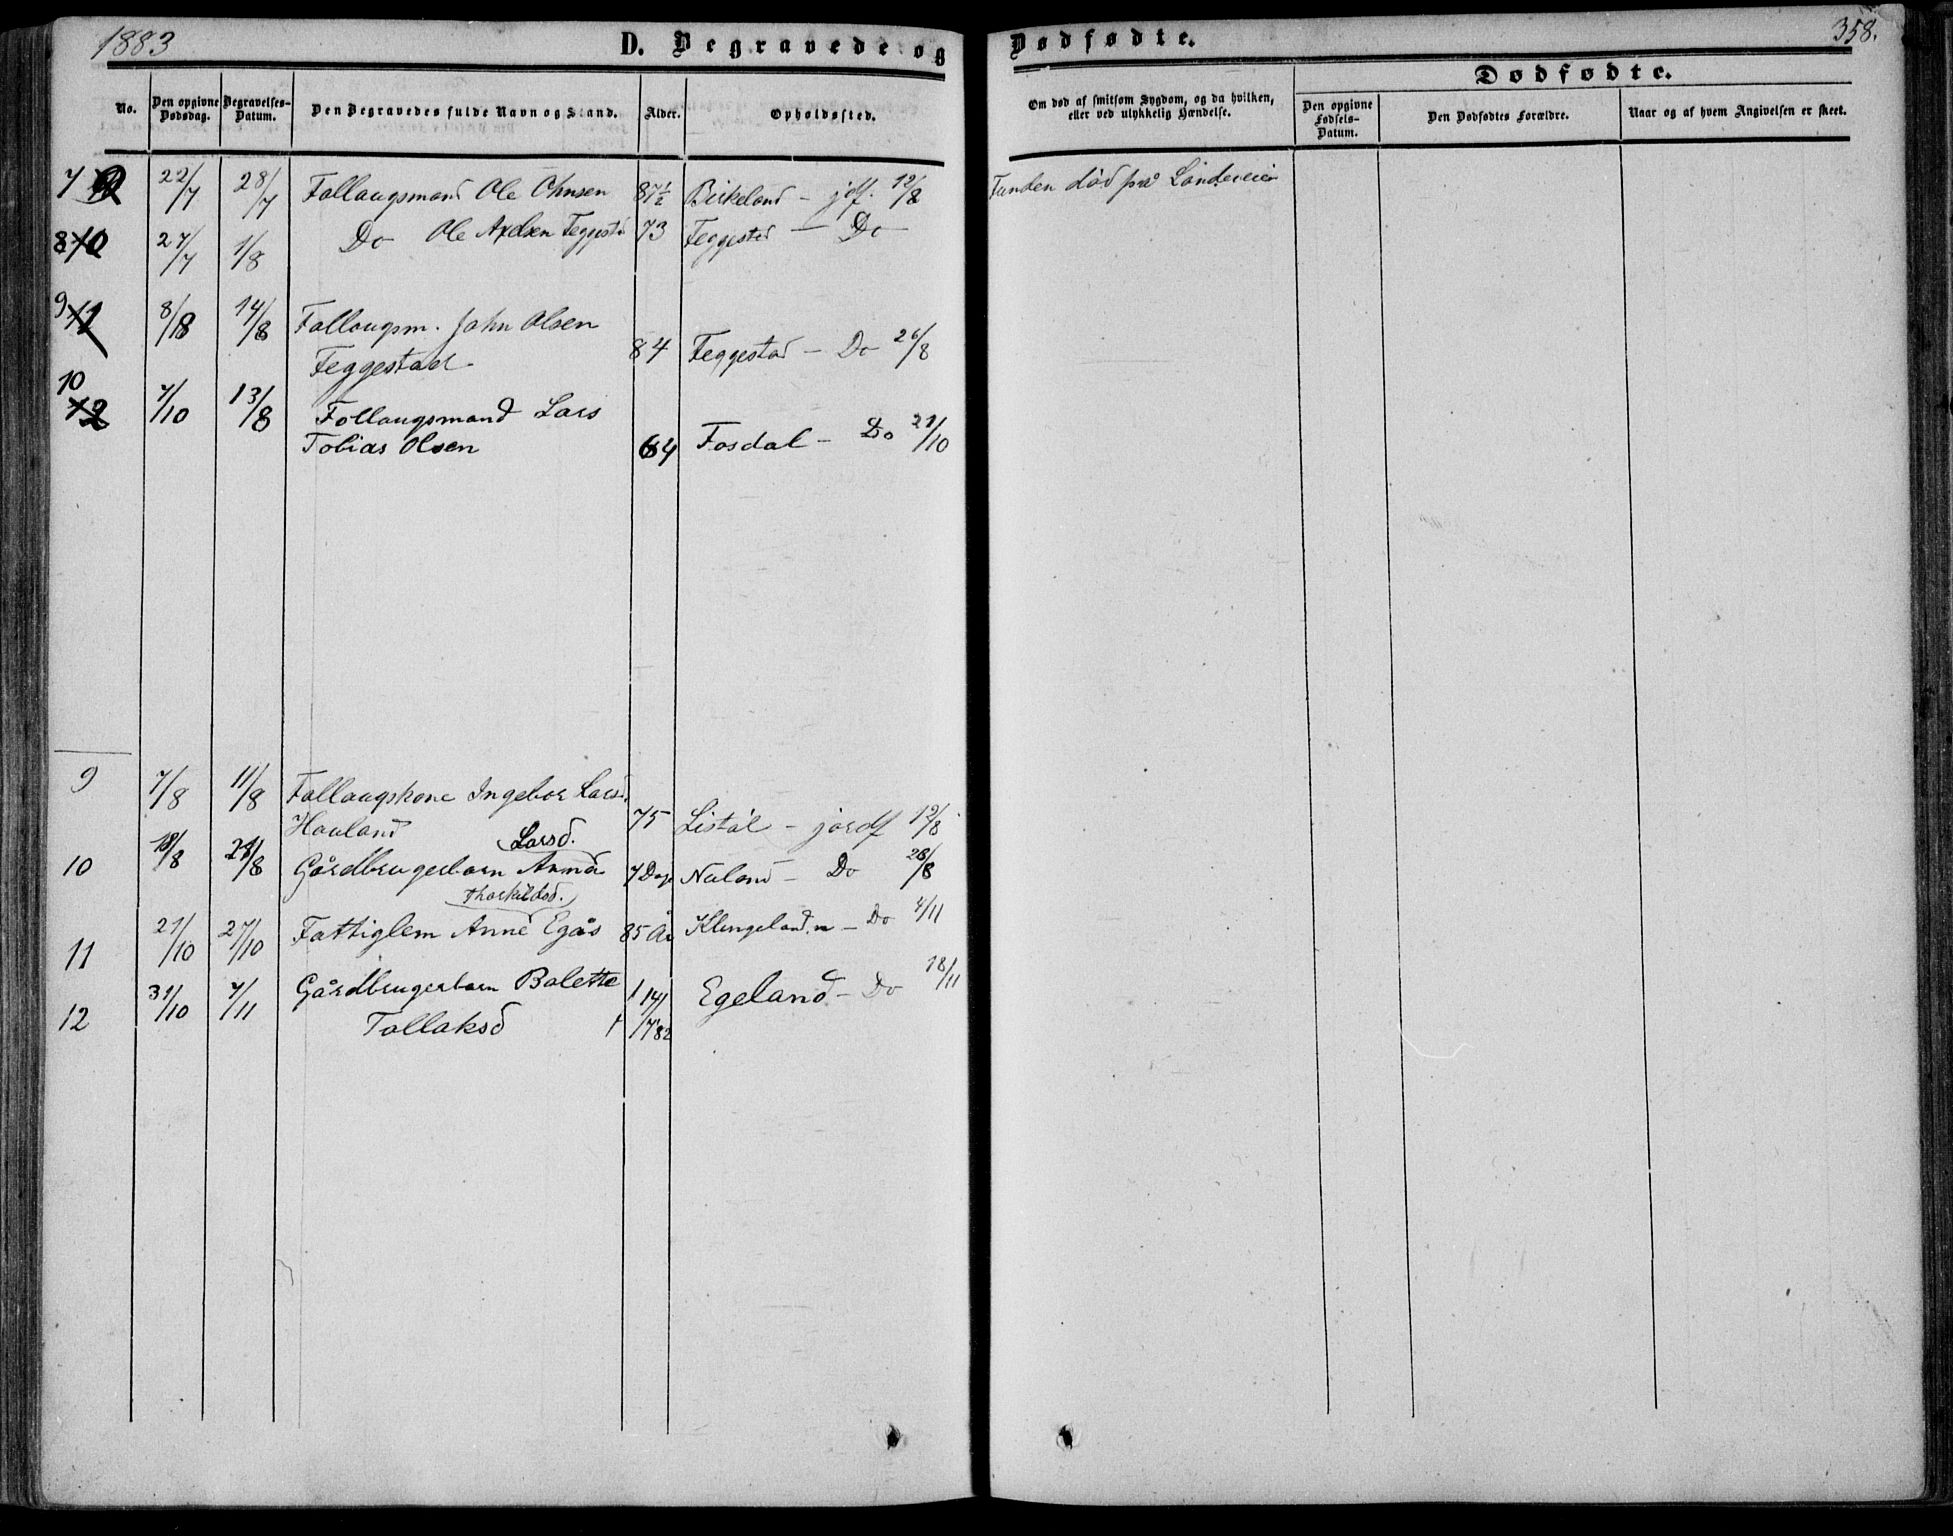 1883
D. Begravede og Dødfødte.
358.
No.
Den opgivne Dødsdag.
Begravelses-Datum.
Den Begravedes fulde Navn og Stand.
Alder.
Opholdssted.
Om død af smitsom Sygdom, og da hvilken, eller ved ulykkelig Hændelse.
Dødfødte.
Den opgivne Fødsels-Datum.
Den Dødfødtes Forældre.
Naar og af hvem Angivelsen er skeet.
7 22/7 28/7 Follaugsmand Ole Ohnsen 87½ Birkeland - jdf. 12/8 Funden død på
8 10 27/7 1/8 Do Ole Axelsen Feggestad 73 Feggestad - Do -
9 11 8/8 14/8 Follaugsm. John Olsen
Feggestad 84 Feggestad - Do 26/8
10 12 7/10 13/8 Follaugsmand Lars
Tobias Olsen 64 Fosdal - Do 21/10
9 7/8 11/8 Follaugskone Ingebor Larsd.
Hauland 75 Listøl - jordf 12/8
Larsd.
10 18/8 21/8 Gårdbrugerbarn Anna 7 Dage Naland - Do 26/8
Thorkildsd.
11 21/10 27/10 Fattiglem Anne Egås 85 År Klungeland - Do 4/11
12 31/10 7/11 Gårdbrugerbarn Bolette
Tollaksd 14/7 82 Egeland - Do 18/11